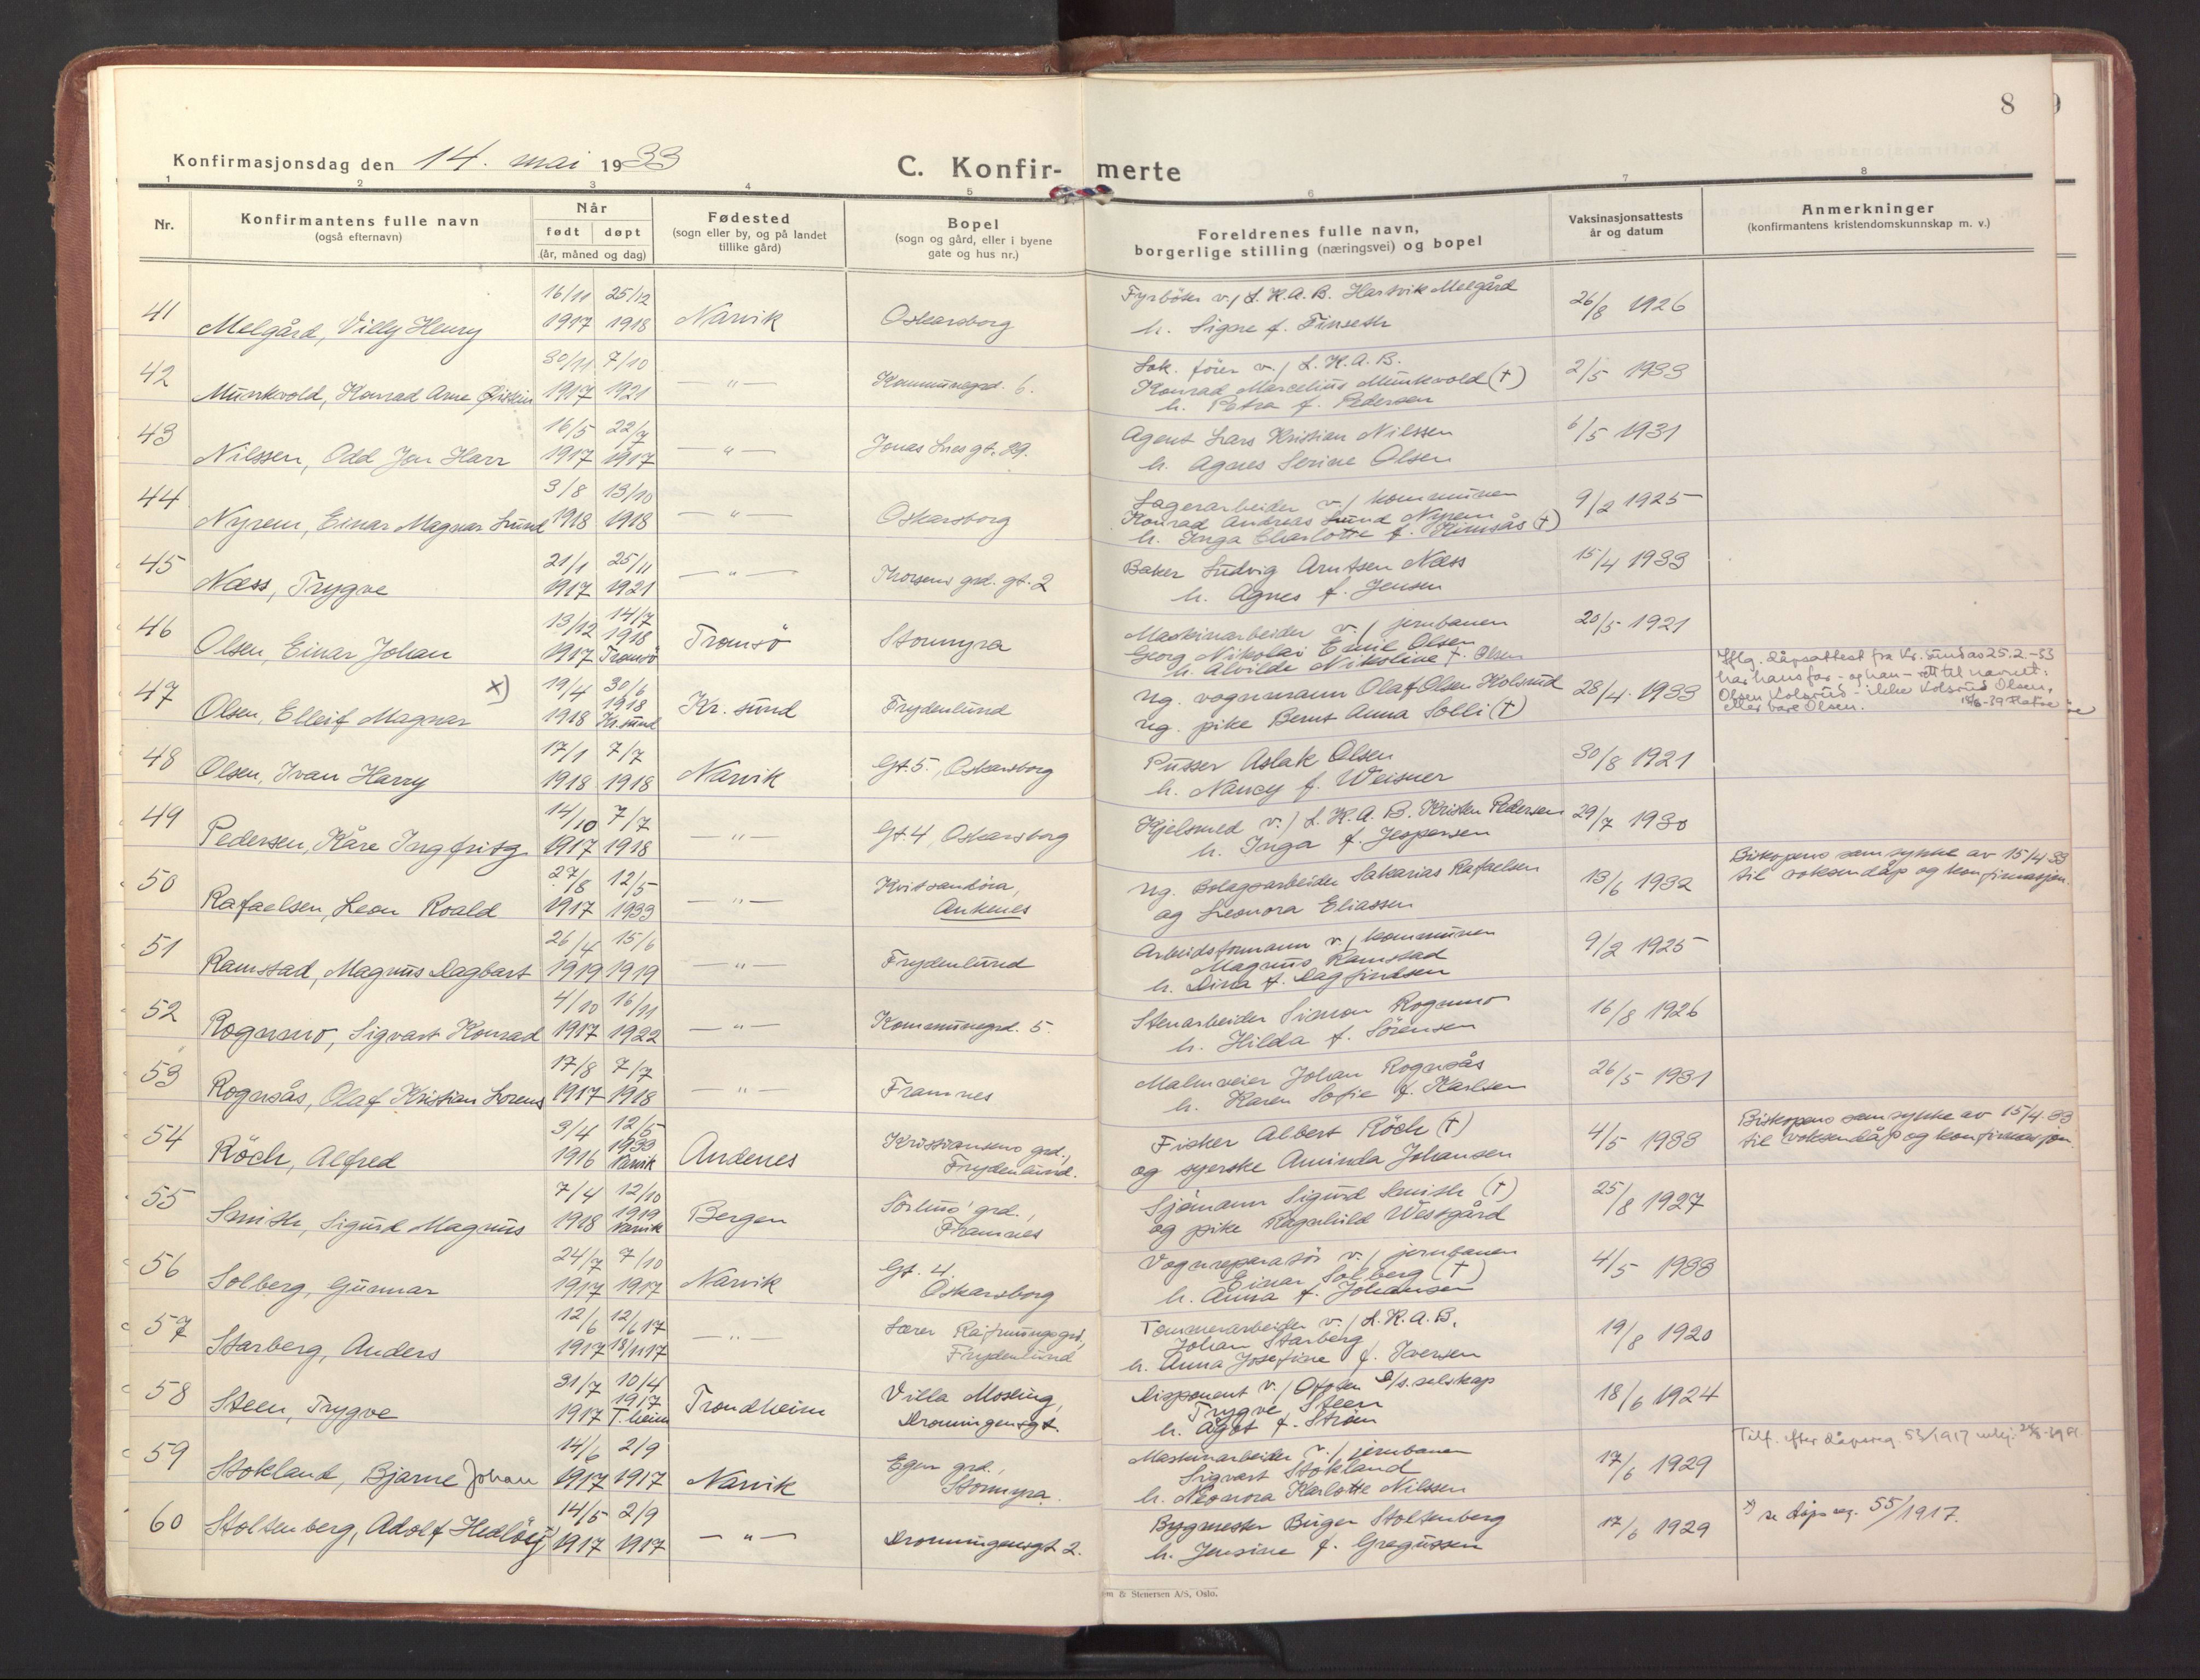 8
Konfirmasjonsdag den 14. mai 1933
C. Konfir- merte
1 2 3 4 5 6 7 8
Nr.
Konfirmantens fulle navn
(også efternavn)
Når
født døpt
(år, måned og dag)
Fødested
(sogn eller by, og på landet
tillike gård)
Bopel
(sogn og gård, eller i byene
gate og hus nr.)
Foreldrenes fulle navn,
borgerlige stilling (næringsvei) og bopel
Vaksinasjonsattests
år og datum
Anmerkninger
(konfirmantens kristendomskunnskap m. v.)
41 Melgård, Villy Henry
16/11 25/12
1917 1918
Narvik
Oskarsborg
Fyrböter v/ L.K.A.B. Hartvik Melgård
h. Signe f. Finseth
26/8 1926
42 Munkvold, Konrad Arne Øistein
30/11 7/10
1917 1921
— " —
Kommunegrd. 6.
Lok. fører v/ L.K.A.B.
Konrad Marcelius Munkvold (†)
h. Petra f. Pedersen
2/5 1933
43 Nilssen, Odd Jon Harr
16/5 22/7
1917 1917
— " —
Jonas Lies gt. 29.
Agent Lars Kristian Nilssen
h. Agnes Serine Olsen
6/5 1931
44 Nyrem, Einar Magnar Lund
3/8 13/10
1918 1918
— " —
Oskarsborg
Lagerarbeider v/ kommunen
Konrad Andreas Lund Nyrem
h. Inga Charlotte f. Kimsås (†)
9/2 1925
45 Næss, Trygve
21/1 25/11
1917 1921
— " —
Thorsens grd. gt. 2
Baker Ludvig Arntsen Næss
h. Agnes f. Jensen
15/4 1933
46 Olsen, Einar Johan
13/12 14/7
1918
1917 Tromsö
Tromsö
Stormyra
Maskinarbeider v/ jernbanen
Georg Nikolai Emil Olsen
h. Alvilde Nikoline f. Olsen
20/5 1921
47 Olsen, Elleif Magnar x)
19/4 30/6
1918
1918 Kr.sund
Kr. sund
Frydenlund
Ug. vognmann Olaf Olsen Kolsrud
ug. pike Bernt Anna Solli (†)
28/4. 1933
Iflg. dåpsattest fra Kr. sund as 25.2.-33
har hans far - og han - rett til navnet:
Olsen Kolsrud - ikke Kolsrud Olsen,
eller bare Olsen.
48 Olsen, Ivan Harry
17/1 7/7
1918 1918
Narvik
Gt. 5, Oskarsborg
Pusser Aslak Olsen
h. Nancy f. Weisner
30/8 1921
49 Pedersen, Kåre Ingfritz
14/10 7/7
1917 1918
— " —
Gt. 4, Oskarsborg
Kjelsmed v/ L.K.A.B. Kristen Pedersen
h. Inga f. Jespersen
29/7 1930
50 Rafaelsen, Leon Roald
27/8 12/5
1917 1933
— " —
Kvitsandöra,
Ankenes
Ug. Bolagsarbeider Sakarias Rafaelsen
og Leonora Eliassen
13/6 1932
Biskopens samtykke av 15/4 33
til voksendåp og konfirmasjon.
51 Ramstad, Magnus Dagbart
26/4 15/6
1919 1919
— " —
Frydenlund
Arbeidsformann v/ kommunen
Magnus Ramstad
h. Dina f. Dagfindsen
9/2 1925
52 Rognmo, Sigvart Konrad
4/10 16/11
1917 1922
— " —
Kommunegrd. 5.
Stenarbeider Simon Rognmo
h. Hilda f. Sörensen
16/8 1926
53 Rognsås, Olaf Kristian Lorens
17/8 7/7
1917 1918
— " —
Framnes
Malmveier Johan Rognsås
h. Karen Sofie f. Karlsen
26/5 1931
54 Röch, Alfred
3/4 12/5
1933
1916 Narvik
Andenes
Kristiansens grd.,
Frydenlund.
Fisker Albert Röch (†)
og syerske Aminda Johansen
4/5 1933
Biskopens samtykke av 15/4 33
til voksendåp og konfirmasjon.
55 Smith, Sigurd Magnus
7/4 12/10
1919
1918 Narvik
Bergen
Sörlmo' grd.,
Framnes
Sjömann Sigurd Smith (†)
og pike Ragnhild Westgård
25/8 1927
56 Solberg, Gunnar
24/7 7/10
1917 1917
Narvik
Gt. 4.
Oskarsborg
Vognreparatör v/ jernbanen
Einar Solberg (†)
h. Anna f. Johansen
4/5 1933
57 Starberg, Anders
12/6 12/6 17
1917 18/11 17
— " —
Lærer Frydenlund
Tömmerarbeider v/ L.K.A.B.
Johan Starberg
h. Anna Josefine f. Iversen
19/8 1920
58 Steen, Trygve
31/7 10/4
1917
1917 T.heim
Trondheim
Villa Mosling,
Dronningensgt.
Disponent v/ Ofoten D/s.selskap
Trygve Steen
h. Ågot f. Ström
18/6 1924
59 Stokland, Bjarne Johan
14/6 2/9
1917 1917
Narvik
Egen grd.,
Stormyra.
Maskinarbeider v/ jernbanen
Sigvart Stokland
h. Neonora Karlotte Nilssen
17/6 1929
Tilf. efter dåpsreg. 53/1917
60 Stoltenberg, Adolf Hedlöv x)
14/5 2/9
1917 1917
— " —
Dronningensgt 2.
Bygmester Birger Stoltenberg
h. Jensine f. Gregussen
17/6 1929
x) se dåpsreg. 55/1917.
m & Stenersen A/S, Oslo.